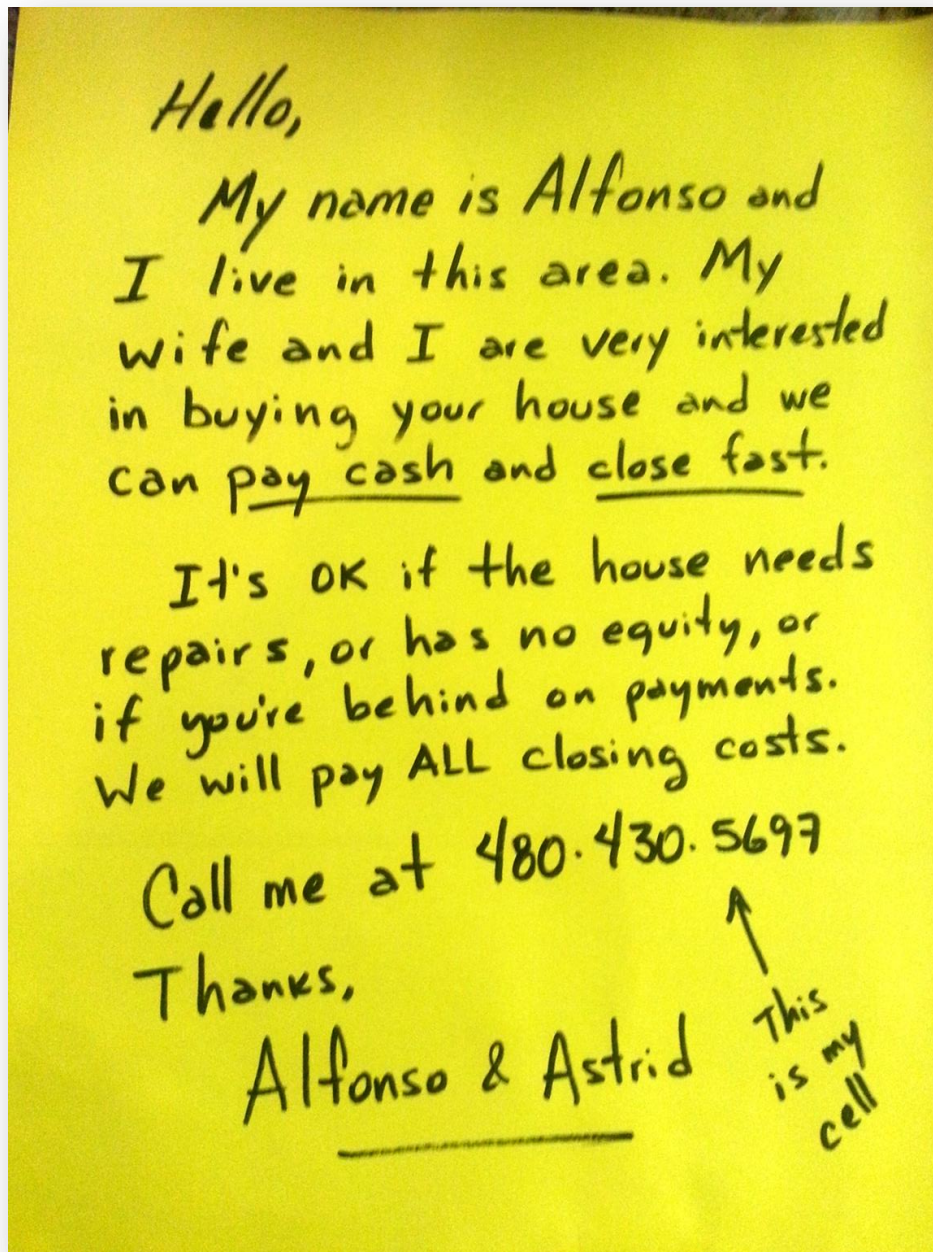 Hello,
My name is Alfonso and
I live in this area. My
wife and I are very interested
in buying your house and we
can pay cash and close fast.
It's OK if the house needs
repairs, or has no equity, or
if you're behind on payments.
We will pay ALL closing costs.
Call me at 480.430.5697
Thanks,
Alfonso & Astrid
This
is my
cell